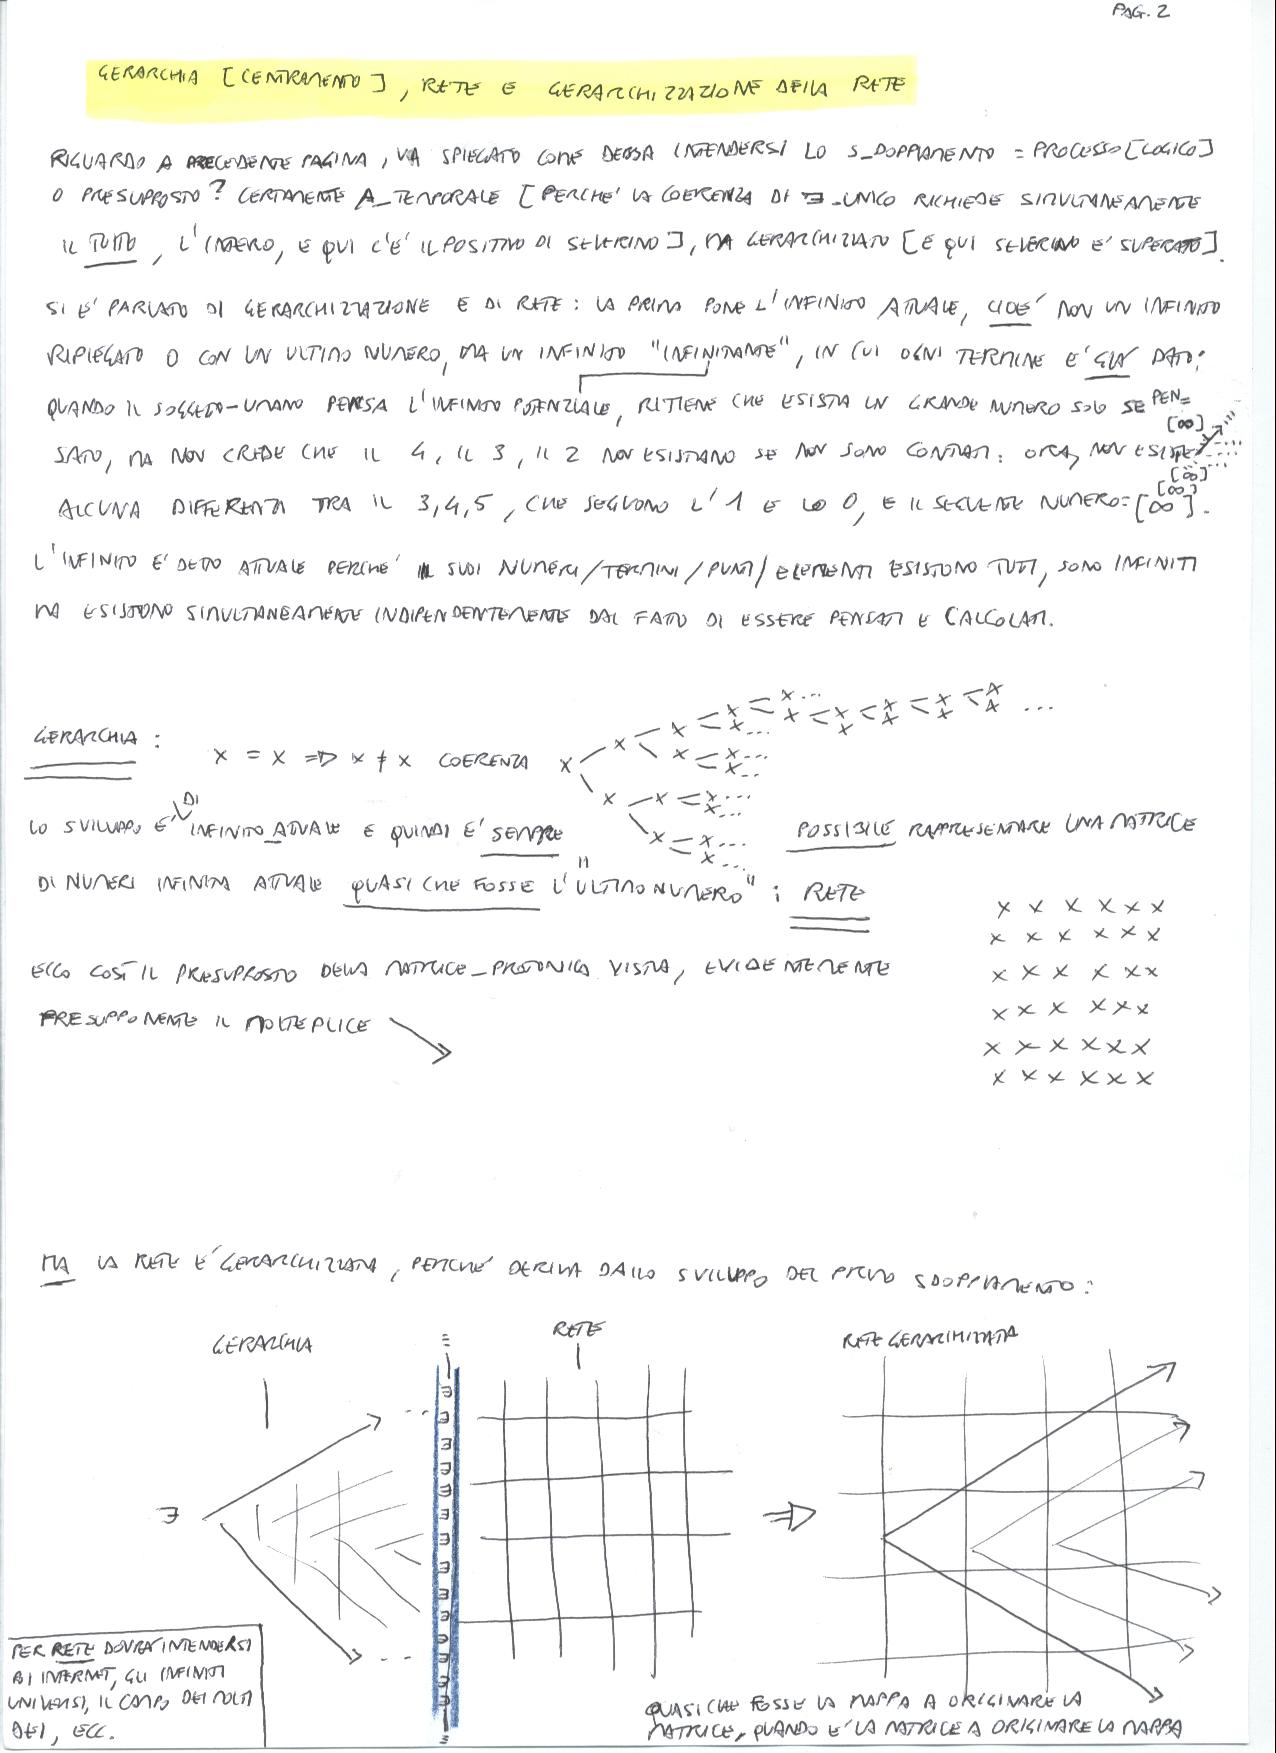 PAG. 2
GERARCHIA [CENTRAMENTO], RETE E GERARCHIZZAZIONE DELLA RETE
RIGUARDO A PRECEDENTE PAGINA, VA SPIEGATO COME DEBBA INTENDERSI LO S_DOPPIAMENTO = PROCESSO [LOGICO]
O PRESUPPOSTO? CERTAMENTE A_TEMPORALE [PERCHE' LA COERENZA DI ∃_UNICO RICHIEDE SIMULTANEAMENTE
IL TUTTO, L'INTERO, E QUI C'E' IL POSITIVO DI SEVERINO], MA GERARCHIZZATO [E QUI SEVERINO E' SUPERATO].
SI E' PARLATO DI GERARCHIZZAZIONE E DI RETE: LA PRIMA PONE L'INFINITO ATTUALE, CIOE' NON UN INFINITO
RIPIEGATO O CON UN ULTIMO NUMERO, MA UN INFINITO "INFINITANTE", IN CUI OGNI TERMINE E' GIA' DATO:
QUANDO IL SOGGETTO-UMANO PENSA L'INFINITO POTENZIALE, RITIENE CHE ESISTA UN GRANDE NUMERO SOLO SE PEN=
SATO, MA NON CREDE CHE IL 4, IL 3, IL 2 NON ESISTANO SE NON SONO CONTATI: ORA, NON ESISTE
[∞]
[∞]
[∞]
ALCUNA DIFFERENZA TRA IL 3,4,5, CHE SEGUONO L'1 E LO 0, E IL SEGUENTE NUMERO=[∞].
L'INFINITO E' DETTO ATTUALE PERCHE' I SUOI NUMERI/TERMINI/PUNTI/ELEMENTI ESISTONO TUTTI, SONO INFINITI
MA ESISTONO SIMULTANEAMENTE INDIPENDENTEMENTE DAL FATTO DI ESSERE PENSATI E CALCOLATI.
GERARCHIA: X = X => X ≠ X COERENZA
LO SVILUPPO E' DI INFINITO ATTUALE E QUINDI E' SEMPRE POSSIBILE RAPPRESENTARE UNA MATRICE
DI NUMERI INFINITA ATTUALE QUASI CHE FOSSE L'"ULTIMO NUMERO": RETE
X X X X X X
X X X X X X
X X X X X X
X X X X X X
X X X X X X
X X X X X X
ECCO COSÌ IL PRESUPPOSTO DELLA MATRICE_PROTONICA VISTA, EVIDENTEMENTE
PRESUPPONENTE IL MOLTEPLICE
MA LA RETE E' GERARCHIZZATA, PERCHE' DERIVA DALLO SVILUPPO DEL PRIMO SDOPPIAMENTO:
GERARCHIA RETE RETE GERARCHIZZATA
∃
PER RETE DOVRA' INTENDERSI
DI INTERNET, GLI INFINITI
UNIVERSI, IL CAMPO DEI MOLTI
DEI, ECC.
QUASI CHE FOSSE LA MAPPA A ORIGINARE LA
MATRICE, QUANDO E' LA MATRICE A ORIGINARE LA MAPPA